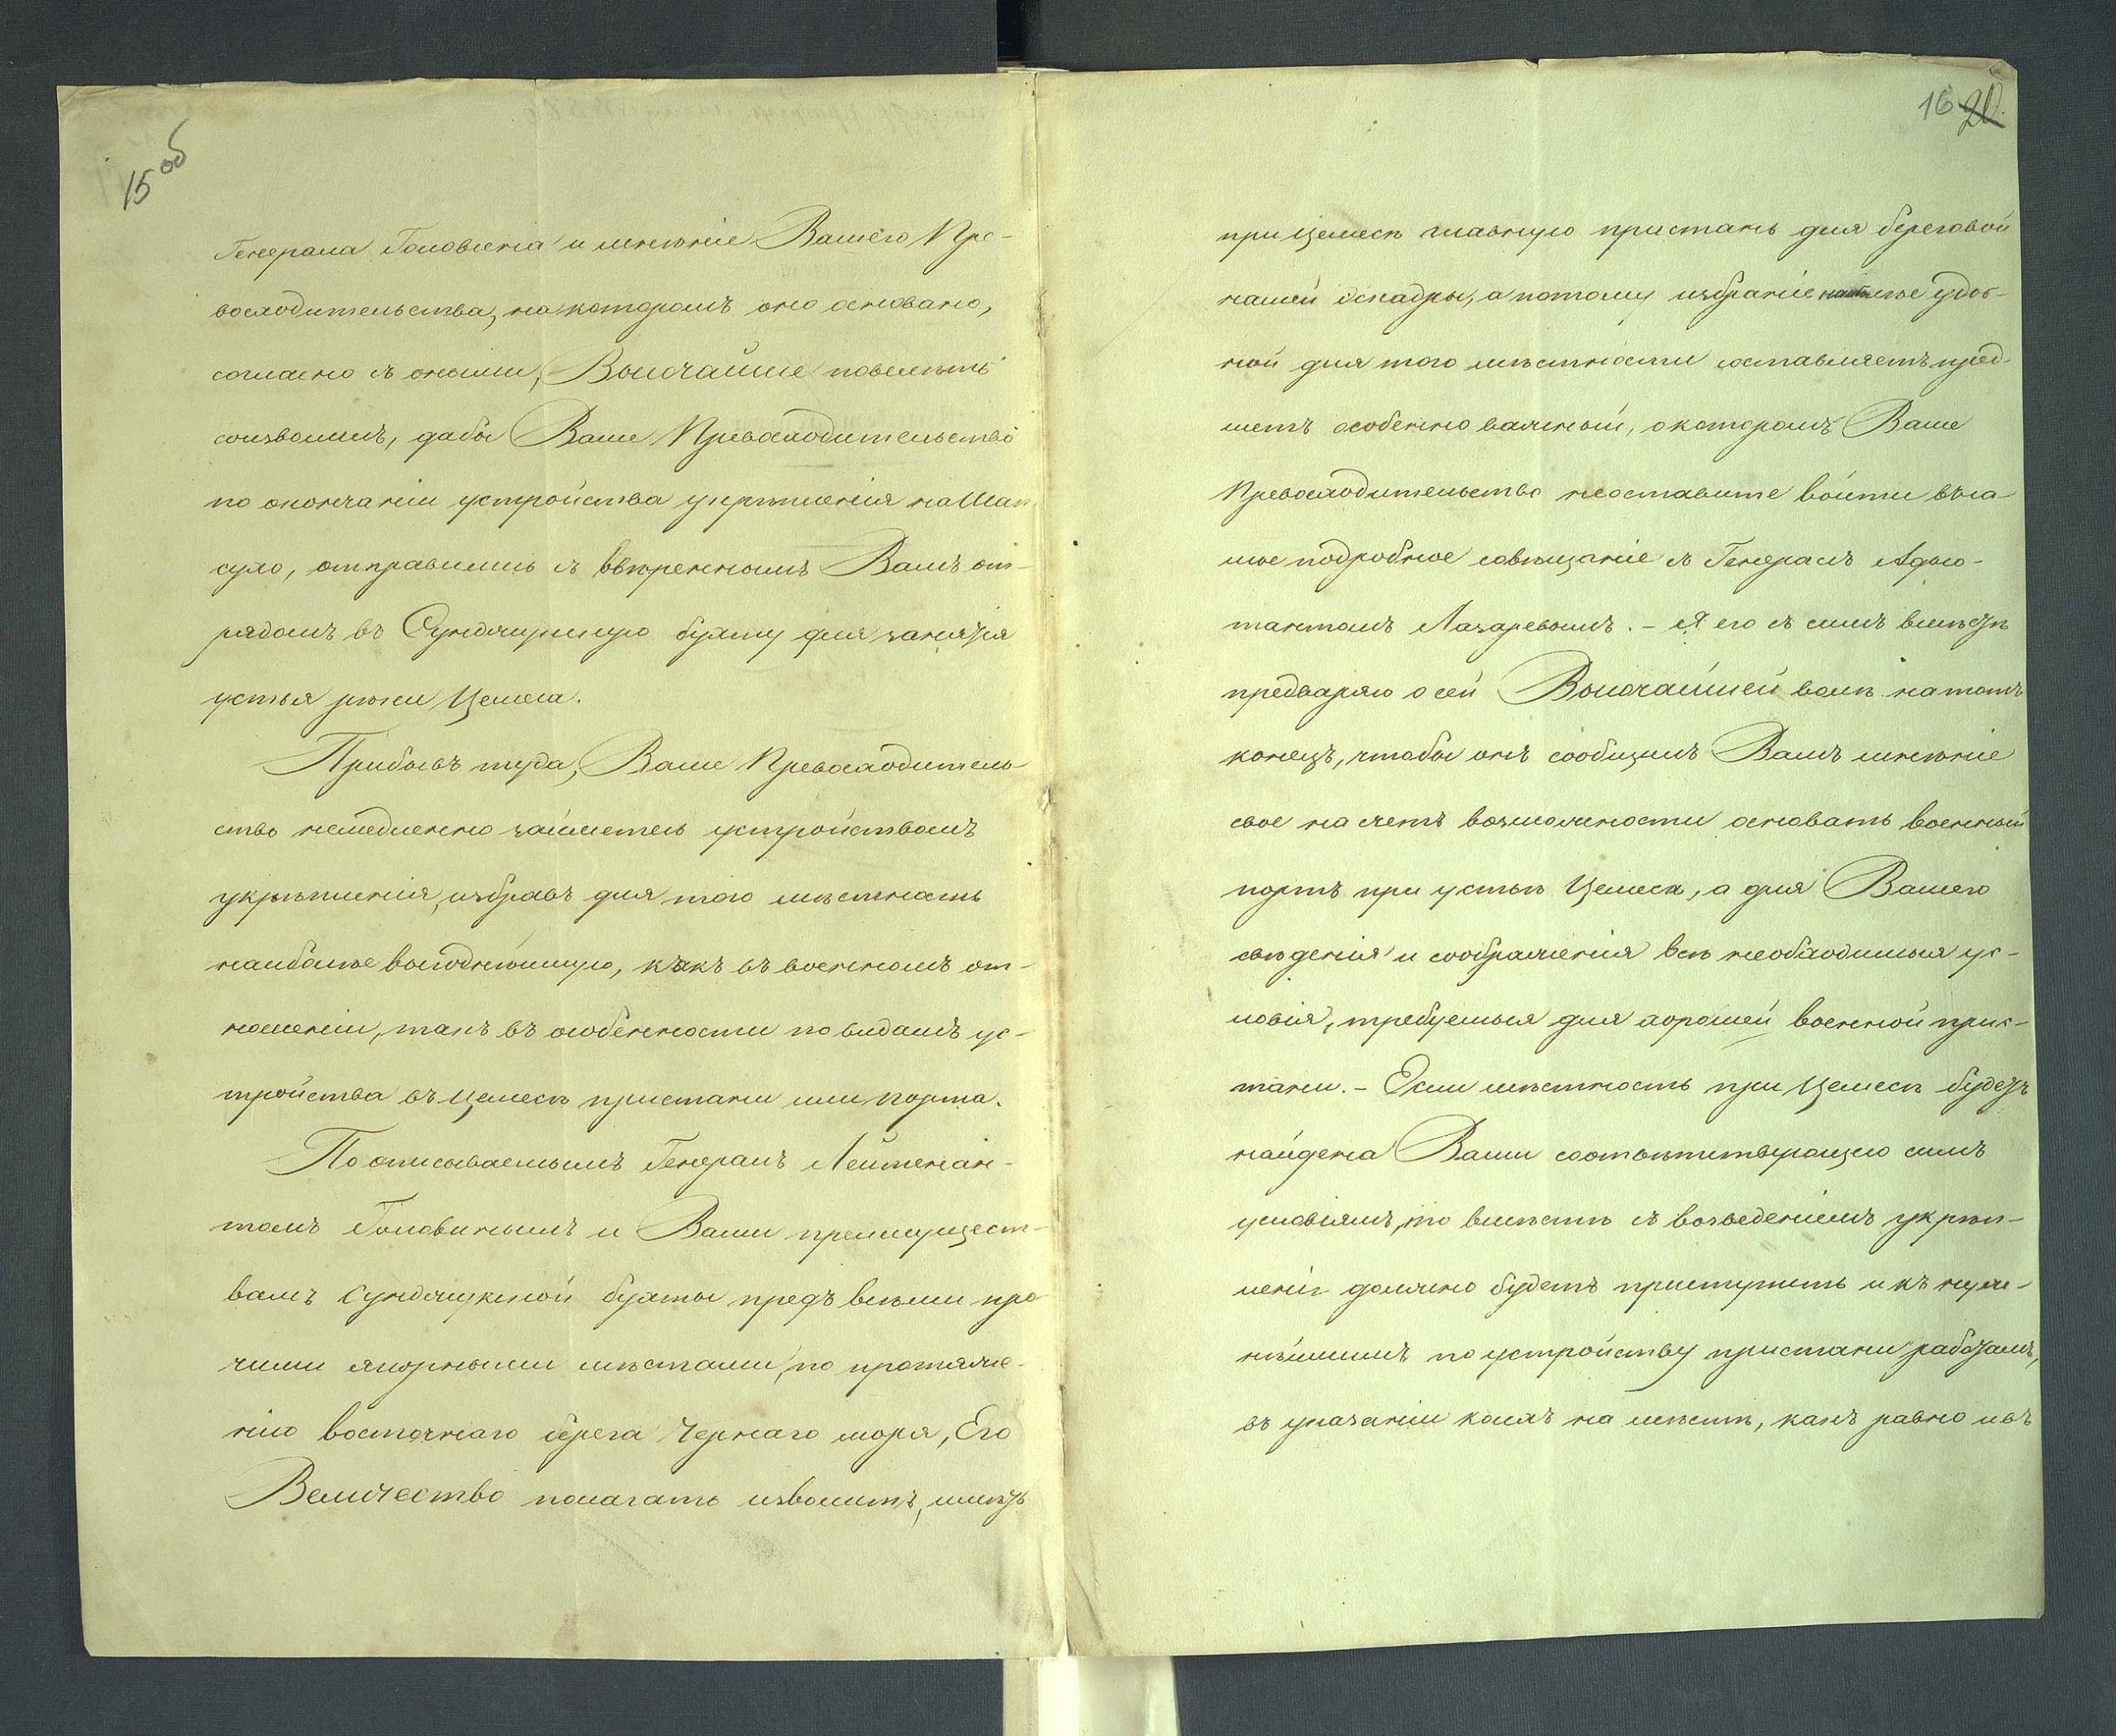 15 об
Генерала Головина и мнѣніе Вашего Пре-
восходительства, на которомъ оно основано,
согласно съ оными, Высочайше повелѣть
соизволилъ, дабы Ваше Превосходительство
по окончаніи устройства укрѣпленія на Шап
сухо, отправились съ ввѣреннымъ Вамъ от-
рядомъ въ Суджукскую бухту для занятія
устья рѣки Цемеса.
Прибывъ туда, Ваше Превосходитель-
ство немедленно займетесь устройствомъ
укрѣпленія, избравъ для того мѣстность
наиболѣе выгоднѣйшую, какъ въ военномъ от-
ношеніи, такъ въ особенности по видамъ ус-
тройства въ Цемесѣ пристани или порта.
По описываемымъ Генералъ Лейтенан-
томъ Головинымъ и Вами преимущест-
вамъ Суджукской бухты предъ всѣми про
чими якорными мѣстами, по протяже-
нію восточнаго берега Чернаго моря, Его
Величество полагать изволитъ, имѣть
16 20.
при Цемесѣ главную пристань для береговой
нашей эскадры, а потому избраніе наиболѣе удоб-
ной для того мѣстности составляетъ пред-
метъ особенно важный, о которомъ Ваше
Превосходительство не оставите войти въ са-
мое подробное совѣщаніе съ Генералъ Адъю-
тантомъ Лазаревымъ. – Я его съ симъ вмѣстѣ
предваряю о сей Высочайшей волѣ на тотъ
конецъ, чтобы онъ сообщилъ Вамъ мнѣніе
свое на счетъ возможности основать военный
портъ при устьѣ Цемеса, а для Вашего
свѣденія и соображенія всѣ необходимыя ус-
ловія, требуемыя для хорошей военной прис-
тани. – Если мѣстность при Цемесѣ будетъ
найдена Вами соотвѣтствующею симъ
условіямъ, то вмѣстѣ съ возведеніемъ укрѣп-
леній должно будетъ приступить и къ нуж-
нѣйшимъ по устройству пристани работамъ,
въ указаніи коихъ на мѣстѣ, какъ равно и въ